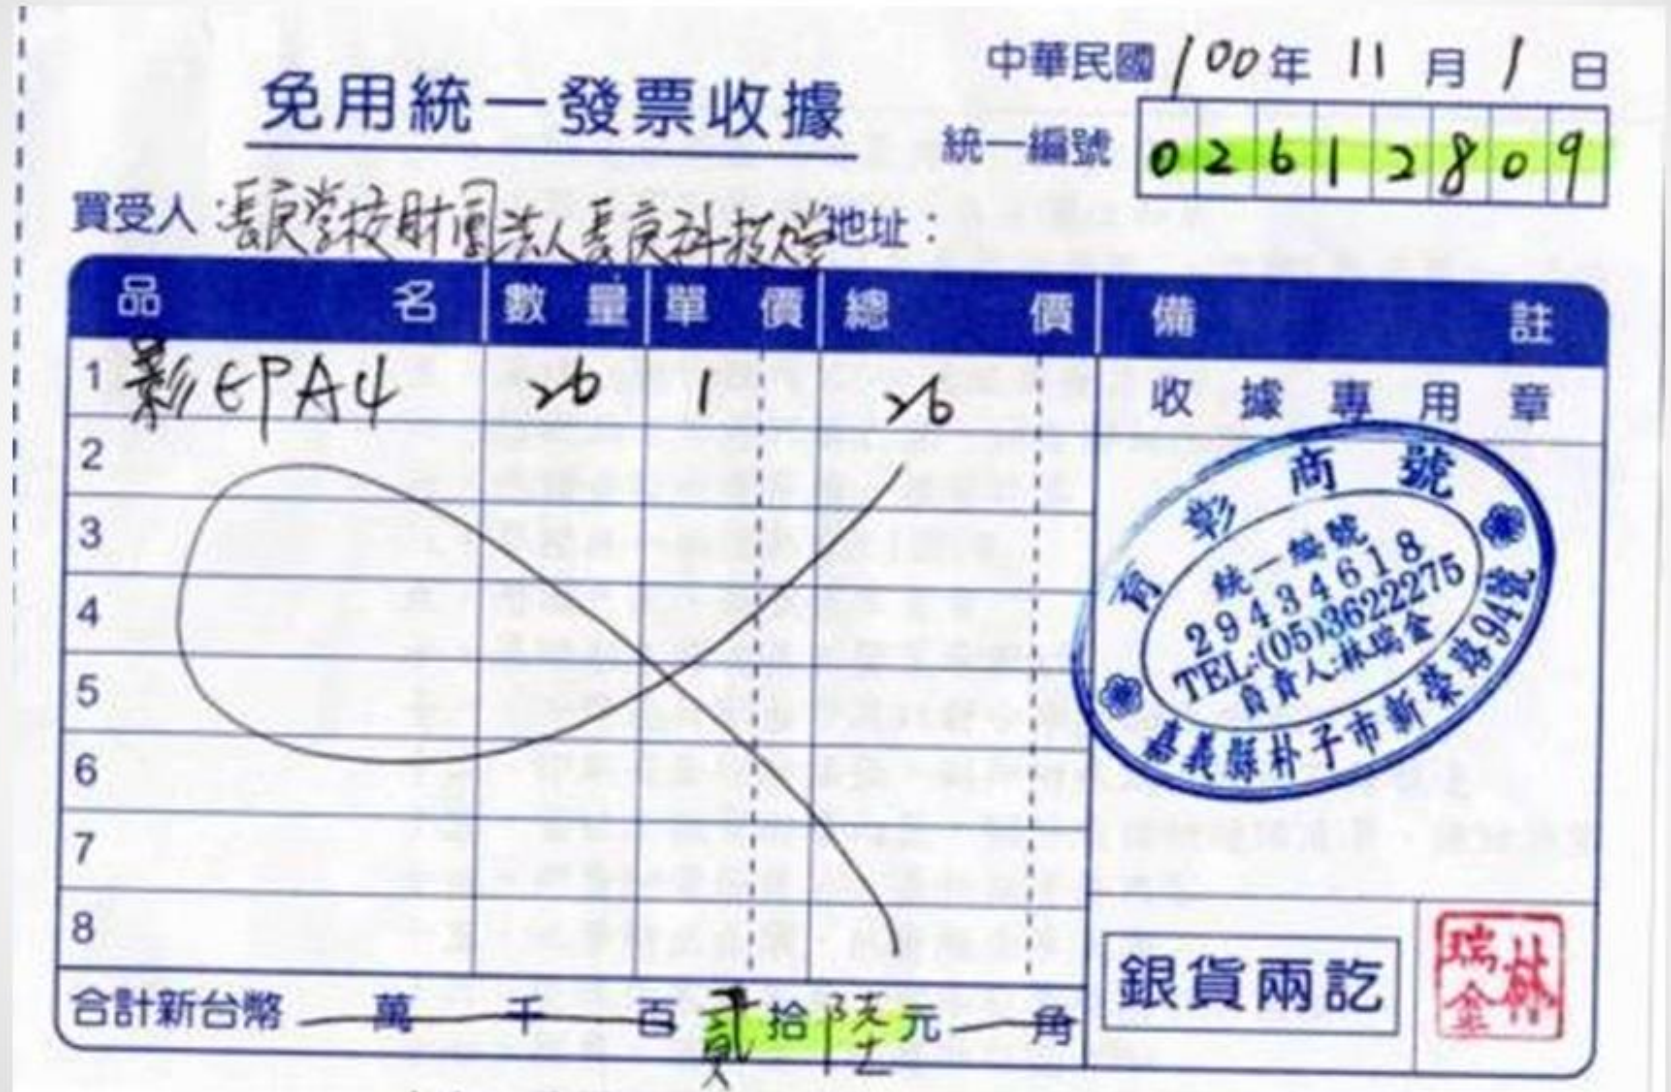 中華民國100年11月1日
免用統一發票收據
統一編號 02612809
買受人:長庚學校財團法人長庚科技大學 地址:
品名 數量 單價 總價 備註
1 影印A4 26 1 26
收據專用章
2
3
4
5
6
7
8
育彰商號
統一編號
29434618
TEL:(05)3622275
負責人:林瑞金
嘉義縣朴子市新榮路94號
合計新台幣 萬 千 百 貳拾陸元 角
銀貨兩訖
林瑞金